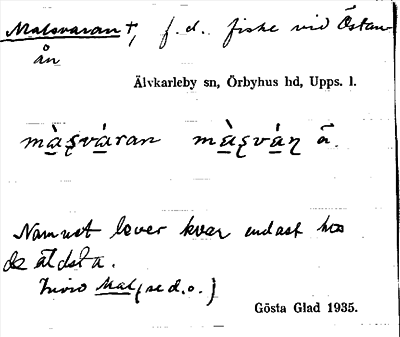 Malsvaran †, f.d. fiske vid Östan-
ån
Älvkarleby sn, Örbyhus hd, Upps. l.
màʂvàran màʂváɳ ā.
Namnet lever kvar endast hos
de äldsta.
Mal (se d.o.)
Gösta Glad 1935.